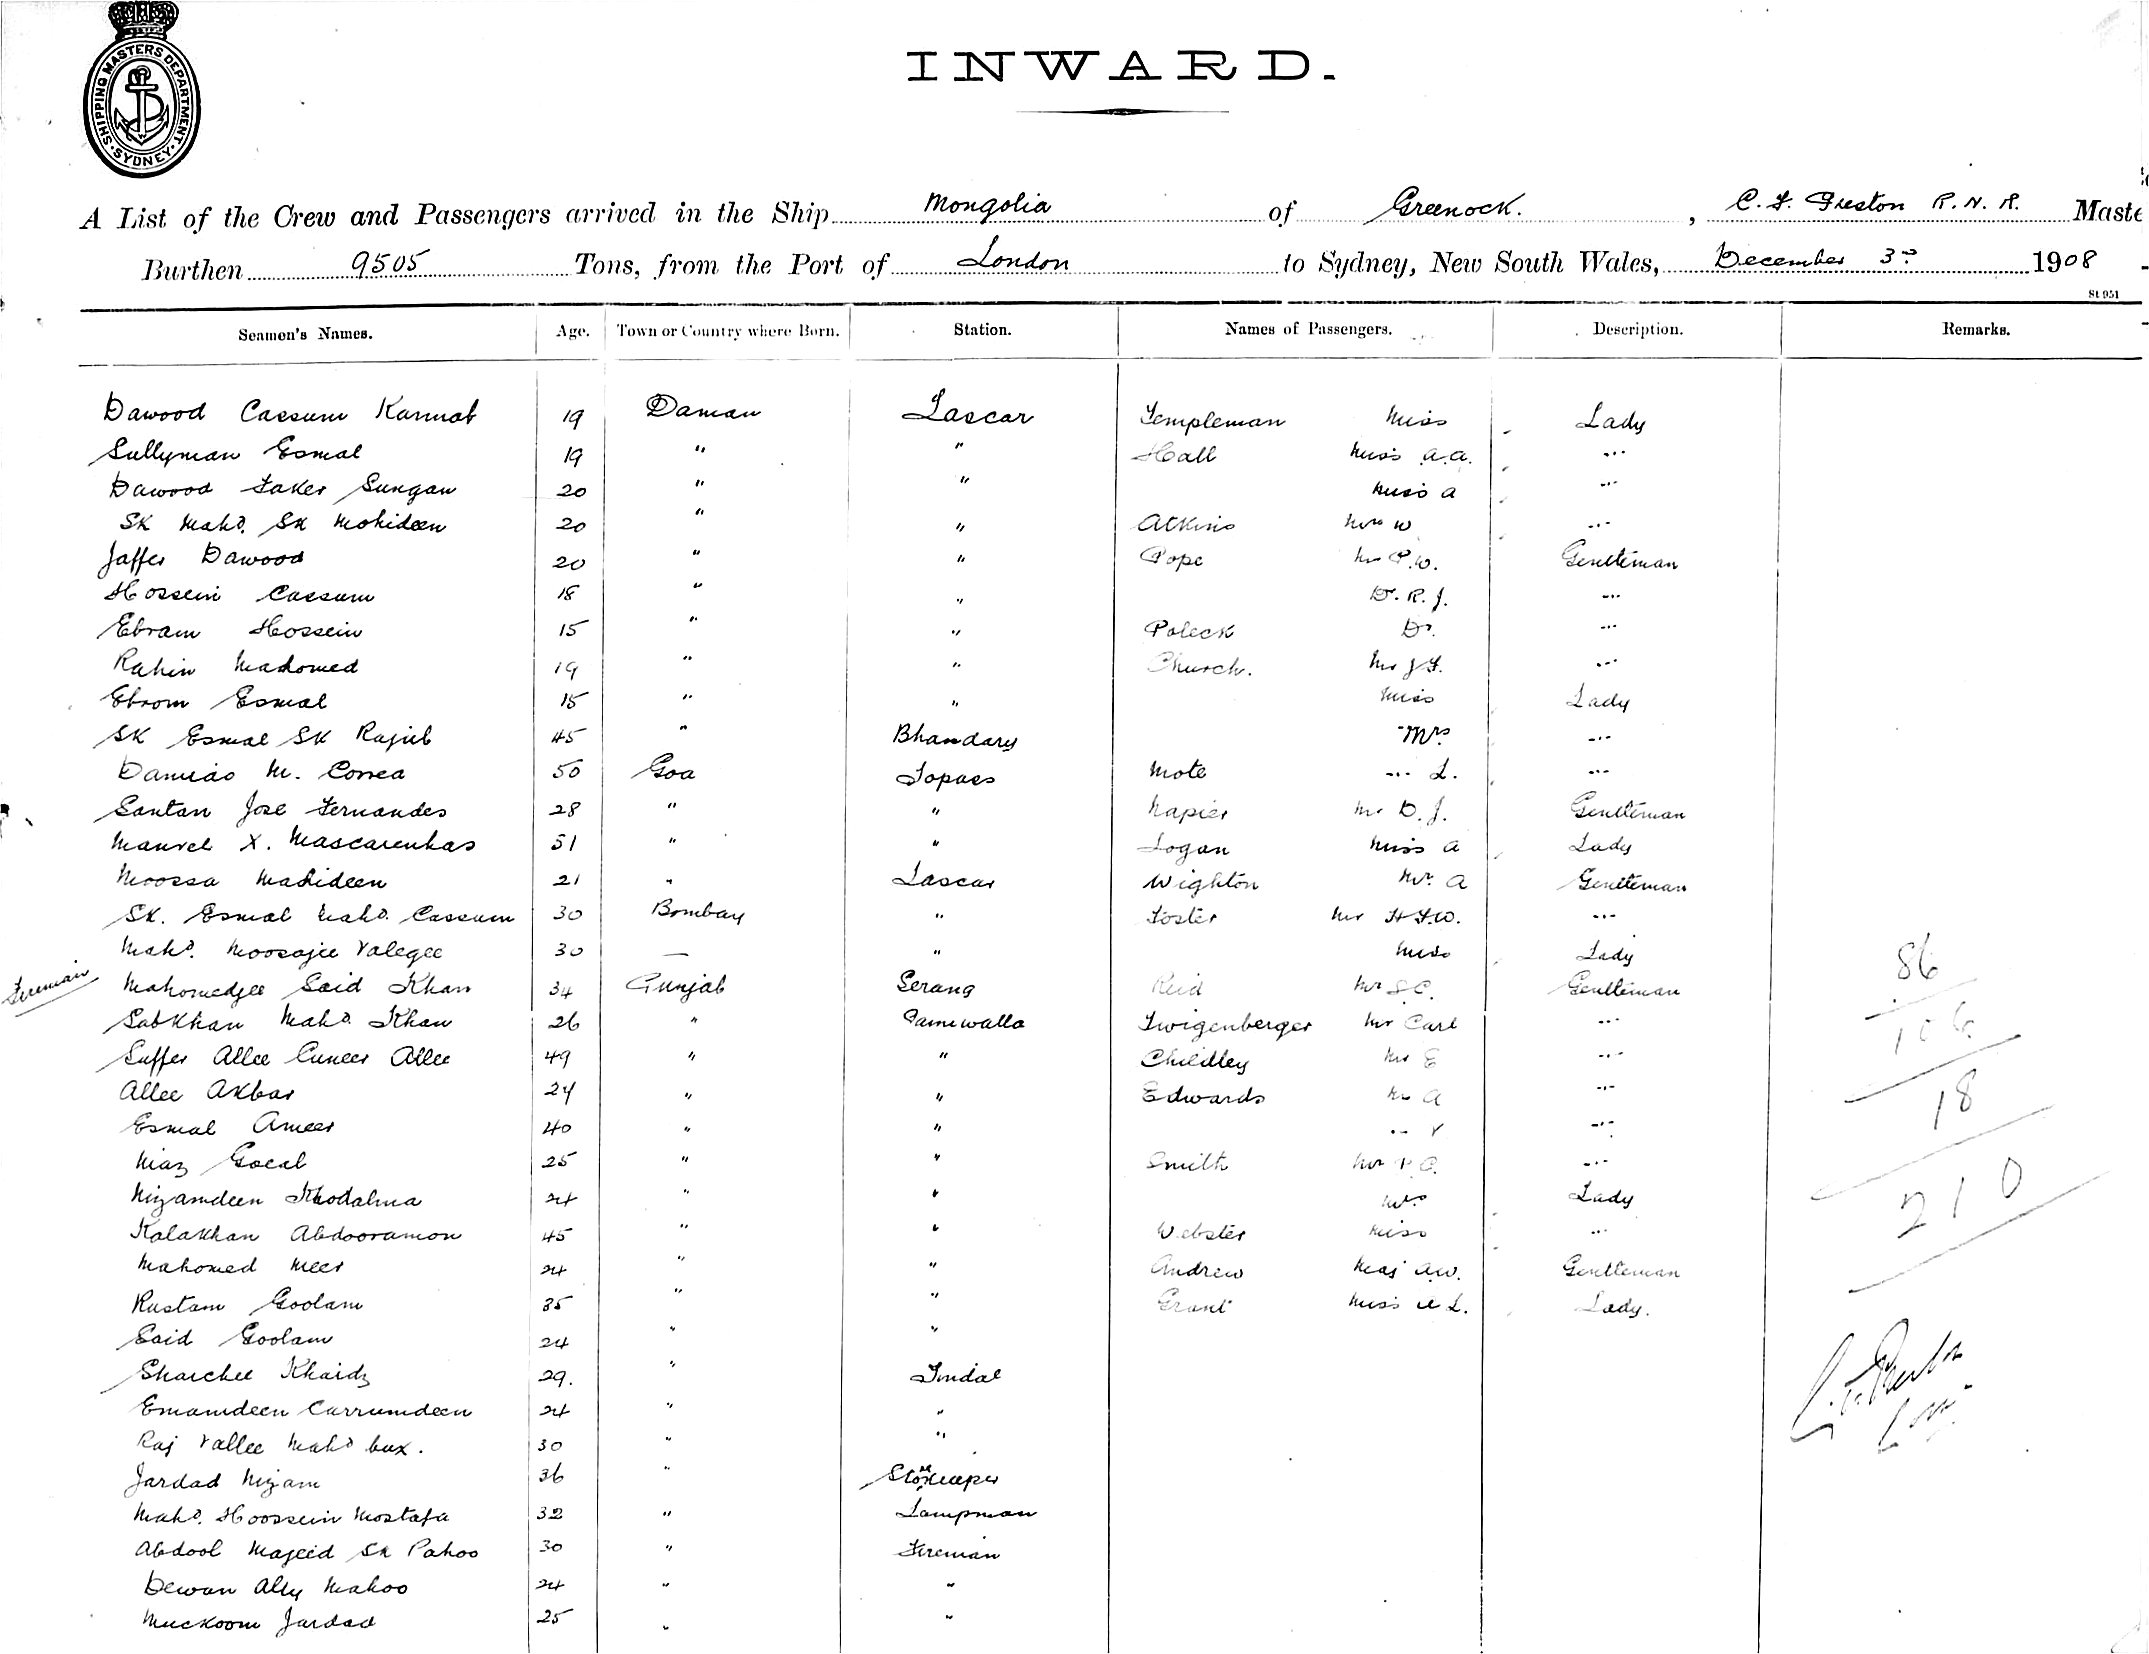 SHIPPING MASTERS DEPARTMENT · SYDNEY ·
INWARD.
A List of the Crew and Passengers arrived in the Ship Mongolia of Greenock. , C. F. Preston R.N.R. Maste
Burthen 9505 Tons, from the Port of London to Sydney, New South Wales, December 3rd 1908
St 951
Seamen's Names. Age. Town or Country where Born. Station. Names of Passengers. Description. Remarks.
Dawood Cassum 19 Daman Lascar Templeman Miss Lady
Sullyman Esmal 19 " " Hall Miss A.A. "
Dawood Faker Sungan 20 " " Miss A "
SK Mahd. SK Mohideen 20 " " Atkins Mrs W "
Jaffer Dawood 20 " " Pope Mr P.W. Gentleman
Hossein Cassum 18 " " Dr. R. J. "
Ebram Hossein 15 " " Poleck Dr. "
Rahin Mahomed 19 " " Church. Mr J F. "
Ebrom Esmal 15 " " Miss Lady
SK Esmal SK Rajub 45 " Bhandary Mrs "
Damiao M. Correa 50 Goa Topass Mote " L. "
Santan Jose Fernandes 28 " " Napier Mr D. J. Gentleman
Manvel X. Mascarenhas 51 " " Logan Miss A Lady
Moossa Mahideen 21 " Lascar Wighton Mr. A Gentleman
SK. Esmal Mahd. Cassum 30 Bombay " Foster Mr H F.W. "
Mahd. Moosajee Valegee 30 — " Miss Lady
Firemen Mahomedjee Said Khan 34 Punjab Serang Reid Mr S.C. Gentleman
SabKhan Mahd. Khan 26 " Paniwalla Twigenberger Mr Carl "
Suffer Allee Cuneer Allee 49 " " Childley Mr E "
Allee Akbar 24 " " Edwards Mr A "
Esmal Ameer 40 " " " V "
Niaz Gocal 25 " " Smith "
Nizamdeen Khodalma 24 " " Mrs Lady
Kalakhan Abdooramon 45 " " Webster Miss "
Mahomed Meer 24 " " Andrew Maj A.W. Gentleman
Rustam Goolam 35 " " Grant Miss A L. Lady.
Said Goolam 24 " "
Sharchee Khaidz 29. " Tindal
Emamdeen Currumdeen 24 " "
Raj Vallee Mahd bux. 30 " "
Jardad Nizam 36 " Storekeeper
Mahd. Hoossein Mostafa 32 " Lampman
Abdool Majeid SK Pahoo 30 " Fireman
Dewan Ally Mahoo 24 " "
Muckoom Jardad 25 " "
86
106
18
210